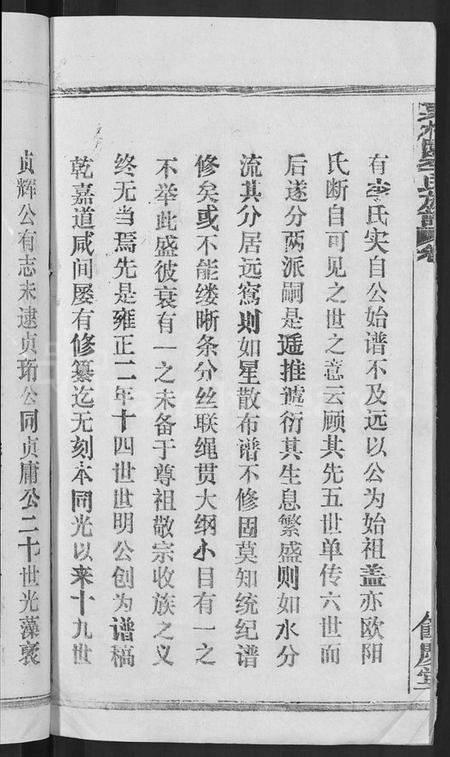 有李氏实自公始谱不及远以公为始祖盖亦欧阳
氏断自可见之世之意云顾其先五世单传六世而
后遂分两派嗣是遥推递衍其生息繁盛则如水分
流其分居远窵则如星散布谱不修固莫知统纪谱
修矣或不能缕晰条分丝联绳贯大纲小目有一之
不举此盛彼衰有一之未备于尊祖敬宗收族之义
终无当焉先是雍正二年十四世世明公创为谱稿
乾嘉道咸间屡有修纂迄无刻本同光以来十九世
贞辉公有志未逮贞珩公同贞庸公二十世光藻褒
李氏族谱 卷
余庆堂